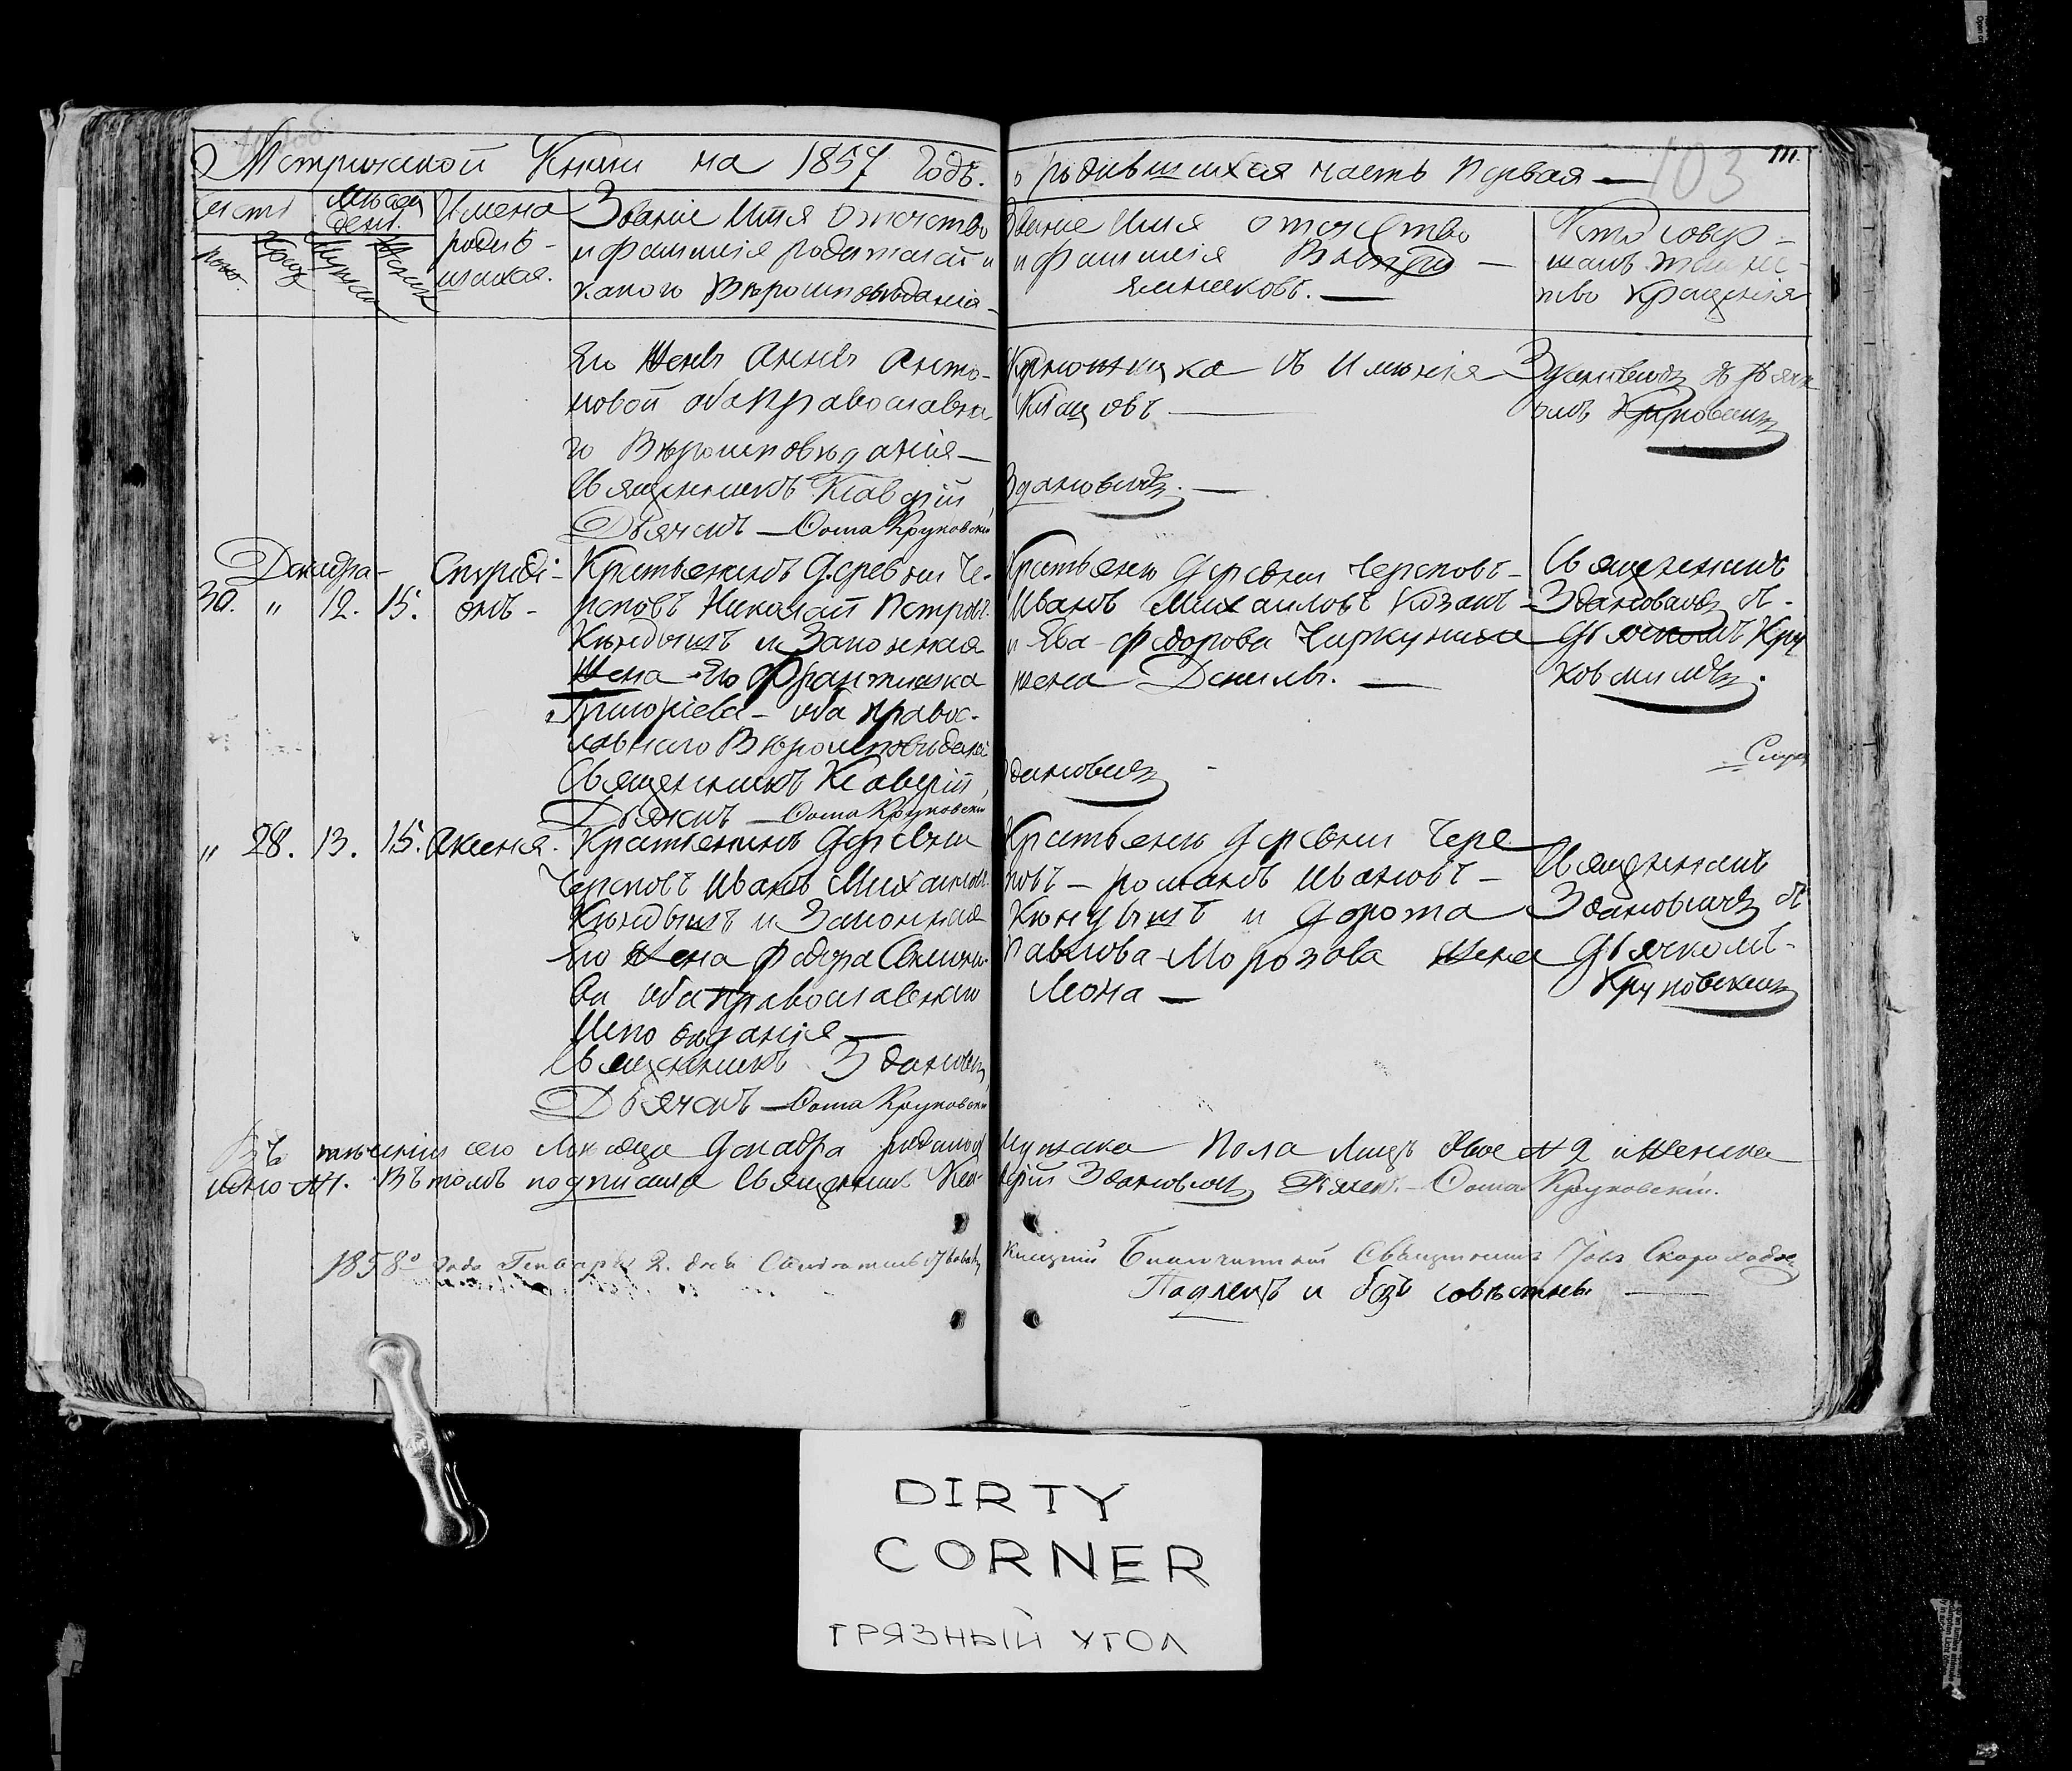 Метрической Книги на 1857 Годъ.
о родившихся часть Первая —
103
Счетъ
Мѣсяцъ
день.
Имена
родив-
шихся.
Званіе Имя отчество
и фамилія родителей и
какого Вѣроисповѣданія
Званіе Имя отчество
и фамилія Воспрі-
емниковъ. —
Кто совер-
шалъ таинс-
тво Крещенія
Его Женѣ Аннѣ Анто-
новой оба Православна
го Вѣроисповѣданія —
Священникъ Ксаверій
Дьячекъ — Ѳома Круковскій
съ Имѣнія
Здановичъ.
Здановичъ съ дьяч
комъ Круковскимъ
Декабря — Спиридi-
30. " 12. 15. онъ -
Крестьянинъ Деревни Че-
реповъ Николай Петровъ
Кындышъ и Законная
Жена Его Францишка
Григоріева — оба Правос-
лавнаго Вѣроисповѣданія
Священникъ Ксаверій
Дьячекъ — Ѳома Круковскій
Крестьяне Деревни Череповъ —
Иванъ Михаиловъ Козакъ
и Ева Федорова Чиркуниха
жена Данилы. —
Здановичъ
Священникъ
Здановичъ съ
дьячкомъ Кру
ковскимъ.
" 28. 13. 15. Ксенія.
Крестьянинъ Деревни
Череповъ Иванъ Михаиловъ
Кындышъ и Законная
Его Жена Федора Семено-
ва оба Православнаго
Исповѣданія —
Священникъ Здановичъ
Дьячекъ — Ѳома Круковскій
Крестьяне Деревни Чере
повъ — романъ Ивановъ —
Кюндышъ и Дорота
Павлова Морозова жена
Леона —
Священникъ
Здановичъ съ
дьячкомъ
Круковскимъ
Въ теченіи сего Мѣсяца Декабря родилось Мужска Пола Лицъ двое № 2 и Женска
одно № 1. Въ томъ подписался Священникъ Ксаверій Здановичъ Дьячекъ — Ѳома Круковскій.
1858го года Генваря 2. дня Благочинный Священникъ Скороходъ
DIRTY
CORNER
ГРЯЗНЫЙ УГОЛ